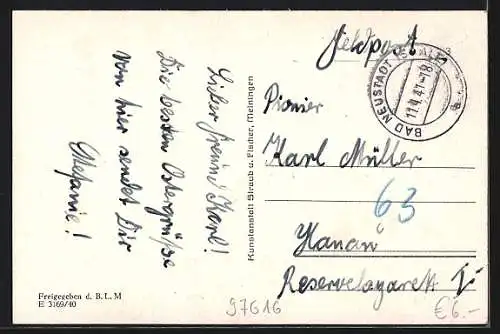 Feldpost
BAD NEUSTADT (SAALE)
11.4.41-18
Lieber Freund Karl!
Die besten Ostergrüße
von hier sendet Dir
Stefanie!
Kunstanstalt Straub u. Fischer, Meiningen
Pionier
Karl Müller
63
Hanau
Reservelazarett I
Freigegeben d. B. L. M
E 3169/40
97G16
€6.-